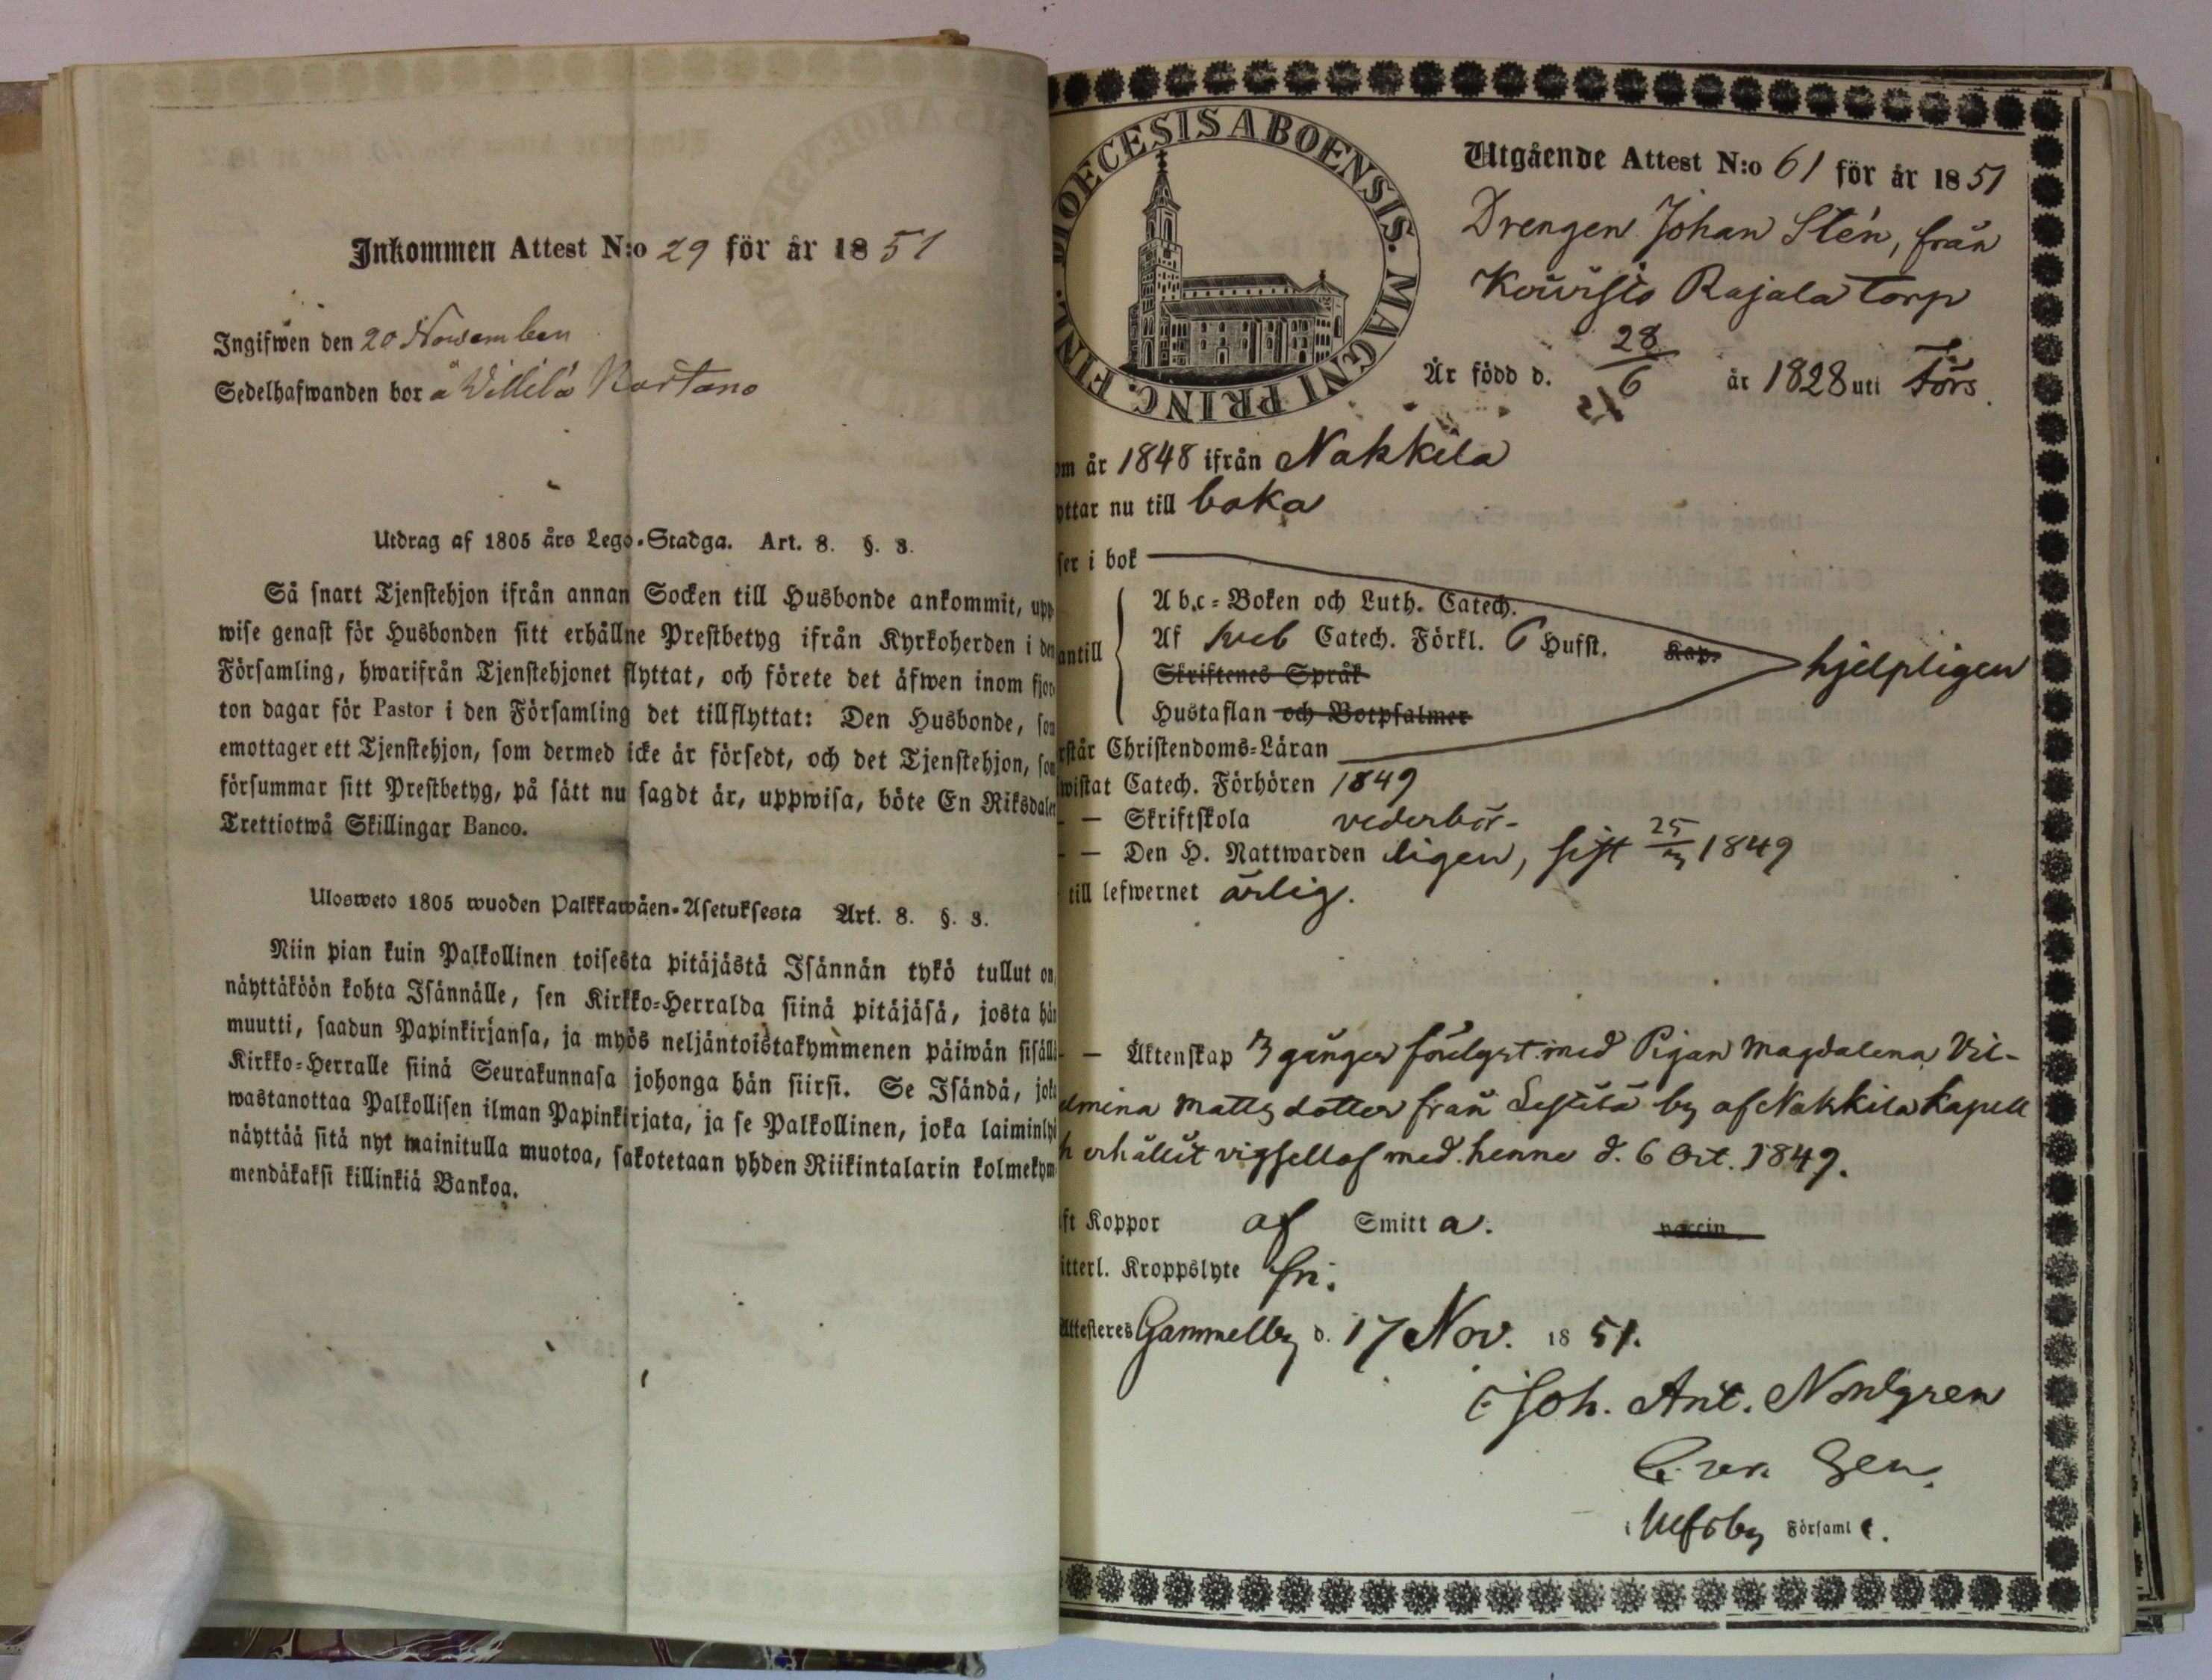 Inkommen Attest N:o 29 för år 1851
Ingifwen den 20 November
Sedelhafwanden bor å Villilä Kartano
Utdrag af 1805 års Lego-Stadga. Art. 8. §. 3.
Så snart Tjenstehjon ifrån annan Socken till Husbonde ankommit, upp
wise genast för Husbonden sitt erhållne Prestbetyg ifrån Kyrkoherden i den
Församling, hwarifrån Tjenstehjonet flyttat, och förete det äfwen inom fjor
ton dagar för Pastor i den Församling det tillflyttat: Den Husbonde, som
emottager ett Tjenstehjon, som dermed icke är försedt, och det Tjenstehjon, som
försummar sitt Prestbetyg, på sätt nu sagdt är, uppwisa, böte En Riksdaler
Trettiotwå Skillingar Banco.
Ulosweto 1805 wuoden Palkkawäen-Asetuksesta Art. 8. §. 3.
Niin pian kuin Palkollinen toisesta pitäjästä Isännän tykö tullut on,
näyttäköön kohta Isännälle, sen Kirkko-Herralda siinä pitäjäsä, josta hän
muutti, saadun Papinkirjansa, ja myös neljäntoistakymmenen päiwän sisällä
Kirkko-Herralle siinä Seurakunnasa johonga hän siirsi. Se Isändä, joka
wastanottaa Palkollisen ilman Papinkirjata, ja se Palkollinen, joka laiminlyö
näyttää sitä nyt mainitulla muotoa, sakotetaan yhden Riikintalarin kolmekym
mendäkaksi killinkiä Bankoa.
FINL. DIOECESIS ABOENSIS. MAGNI PRINC.
Utgående Attest N:o 61 för år 1851
Drengen Johan Stén, från
Rajala torp
Är född d. 28/6 år 1828 uti Förs.
om år 1848 ifrån Nakkila
yttar nu till
ser i bok
Abc-Boken och Luth. Catech.
antill Af Sveb Catech. Förkl. 6 Hufst. Kap. hjelpligen
Skriftenes Språk
Hustaflan och Botpsalmer
rstår Christendoms-Läran
wistat Catech. Förhören 1849
— Skriftskola vederbör-
— Den H. Nattwarden ligen, sist 25/3 1849
till lefwernet ärlig.
— Äktenskap 3 gånger med Pigan Magdalena Vil-
elmina Matts dotter från by af Nakkila Kapell
h erhållit med henne d. 6 Oct. 1849.
ft Koppor af Smitta. vaccin
itterl. Kroppslyte fri.
Attesteres Gammelby d. 17 Nov. 1851.
Joh. Ant. Nordgren
i Ulfsby Församl